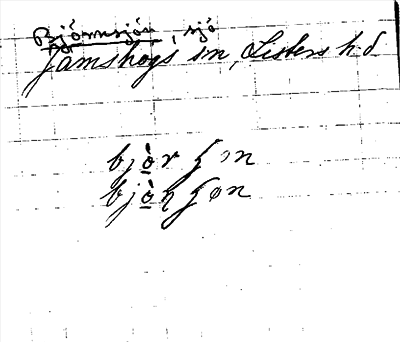 Björnsjön, sjö
Jämshögs sn, Listers hd.
bjò̱r ʃ ɔn
bjò̱ɳ ʃ ɵn